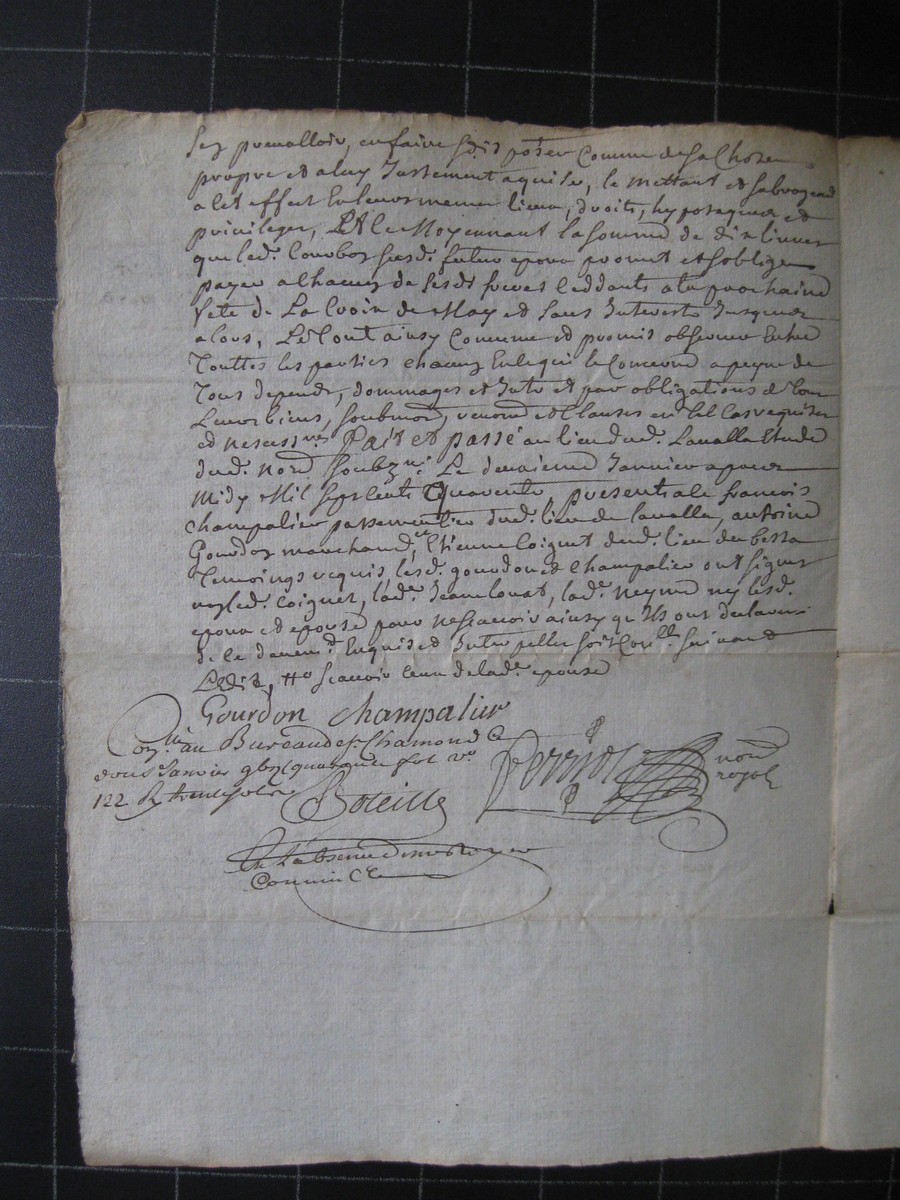 Sey prevalloir, en faire & disposer Comme de Sa Chose
propre et a luy Justement aquise, le mettant et Subrogeant
a cet effect En leur mesme lieu, droits, hypoteques et
privileges, Et Ce Moyennant la Somme de dix livres
que led. Courbon susd. futur epoux promet et Soblige
payer a Chacun de Sesds freres Ceddants a la prochaine
fete de La Croix de May et Sans Interests Jusques
alors, Le Tout ainsy Convenu et promis observer Entre
Touttes les parties chacun En ce qui le Concerne a peyne de
Tous depends, dommages et Intr et par obligations de tous
Leurs biens, Soubmon, renond et Clauses en tel Cas requises
et nesessres Fait et passé au lieu dud. Lavalla Etude
dud. nore Soubzné Le deuxieme Janvier apres
midy Mil Sept Cents Quarente, presents Me francois
champalier passementier dud. lieu de Lavalla, antoine
Gourdon marchand, et Etienne Coignet dud. lieu du bessa
Temoings requis, lesd. gourdon et Champalier ont Signes
non led. Coignet, lad. Jeane louat, lad. neyme ny lesd.
epoux et epouse pour ne Scavoir ainsy qu'Ils ont declaré
de Ce deuemt Enquis et Interpelles Soit Conllé Suivant
Ledit, tto Scavoir Ceux de lad. epouse
Gourdon champalier
Conllé au Bureau de St. Chamond Ce
douse Janvier 
122 R trente sols
Perriol
nore
royal
En l'absence de 
Commis